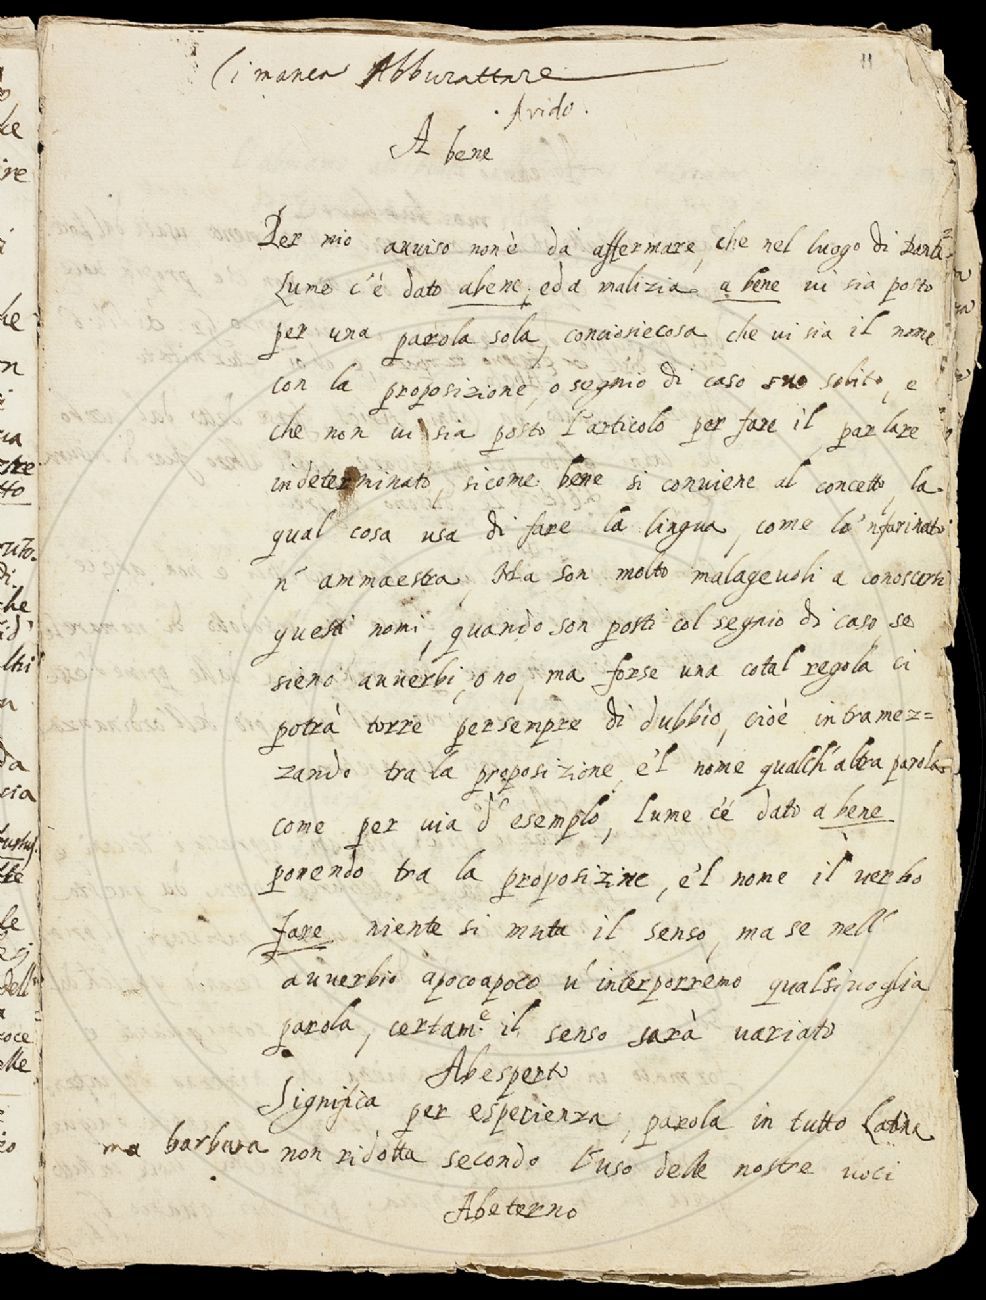 11
Ci manca Abburattare
. Arido .
A bene
Per mio auuiso non è da affermare, che nel luogo di Dante
Lume c'è dato abene, ed a malizia a bene ui sia posto
per una parola sola, conciosiecosa che ui sia il nome
con la proposizione, o segnio di caso suo solito, e
che non ui sia posto l'articolo per fare il parlare
indeterminato, sicome bene si conuiene al concetto, la
qual cosa usa di fare la lingua, come lo 'nfarinato
n' ammaestra, Ma son molto malageuoli a conoscersi
questi nomi, quando son posti col segnio di caso, se
sieno auuerbi, o no, ma forse una cotal regola ci
potrà torre persempre di dubbio, cioè intramez=
zando tra la proposizione, e'l nome qualch'altra parola
come per uia d' esemplo, Lume c'è dato a bene
ponendo tra la proposizine, e'l nome il uerbo
fare niente si muta il senso, ma se nell'
auuerbio apocoapoco u' interporremo qualsiuoglia
parola, certam.e il senso sarà uariato
Abesperto
Significa per esperienza, parola in tutto Latina
ma barbara non ridotta secondo l'uso delle nostre uoci
Abeterno